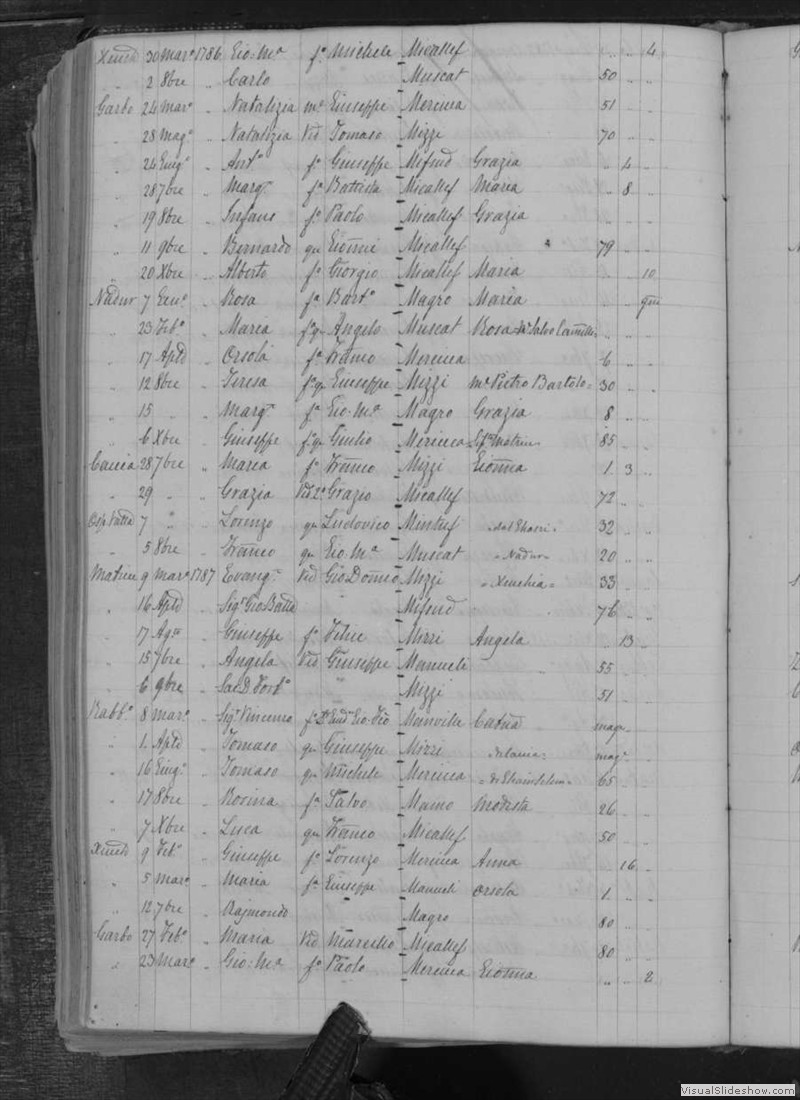 Xeuch 30 Mar.o 1786 Gio: M.a f.o Michele Micallef „ „ 4
„ 2 8bre „ Carlo Muscat 50 „ „
Garbo 24 Mar.o „ Natalizia m.e Giuseppe Mercieca 51 „ „
„ 28 Mag.o „ Natalizia Vid Tomaso Mizzi 70 „ „
„ 24 Giug.o „ Ant.o f.o Giuseppe Mifsud Grazia „ 4 „
„ 28 7bre „ Marg.a f.a Battista Micallef Maria „ 8 „
„ 19 8bre „ Infans f.o Paolo Micallef Grazia „ „ „
„ 11 9bre „ Bernardo qu Gioñni Micallef 79 „ „
„ 20 Xbre „ Alberto f.o Giorgio Micallef Maria „ „ 10
Nadur 7 Gen.o „ Rosa f.a Bart.o Magro Maria „ „
„ 23 Feb.o „ Maria f.a qu Angelo Muscat Rosa Salvo „ „ „
„ 17 Aple „ Orsola f.a Franco Mercieca 6 „ „
„ 12 8bre „ Teresa f.a qu Giuseppe Mizzi m.e Pietro Bartolo 30 „ „
„ 15 „ „ Marg.a f.a Gio. M.a Magro Grazia 8 „ „
„ 6 Xbre „ Giuseppe f.o qu Giulio Mercieca 85 „ „
Caccia 28 7bre „ Maria f.a Franco Mizzi Gioñna 1 3 „
„ 29 „ „ Grazia Vid 2.o Grazio Micallef 72 „ „
7 „ „ Lorenzo qu Ludovico Mintuf 32 „ „
„ 5 8bre „ Franco qu Gio. M.a Muscat „ Nadur „ 20 „ „
Matrice 9 Mar.o 1787 Evang.a Vid Gio Domco Mizzi „ Xeuchia „ 33 „ „
„ 16 Aple „ Sig.r Gio Batta Mifsud 76 „ „
„ 17 Ag.to „ Giuseppe f.o Felice Mizzi Angela „ 13 „
„ 15 7bre „ Angela Vid Giuseppe Manueli 55 „ „
„ 6 9bre „ Sac. D. Fort.o Mizzi 51 „ „
Rabb.o 8 Mar.o „ Sig.r Vincenzo Meinville Catña
„ 1. Aple „ Tomaso qu Giuseppe Mizzi
„ 16 Giug.o „ Tomaso qu Michele Mercieca 65 „ „
„ 17 8bre „ Rosina f.a Salvo Muino Modesta 26 „ „
„ 7 Xbre „ Luca qu Franco Micallef 50 „ „
Xeuch 9 Feb.o „ Giuseppe f.o Lorenzo Mercieca Anna „ 16 „
„ 5 Mar.o „ Maria f.a Giuseppe Manueli Orsola 1 „ „
„ 12 7bre „ Rajmondo Magro 80 „ „
Garbo 27 Feb.o „ Maria Vid Marcello Micallef 80 „ „
„ 23 Mar.o „ Gio: M.a f.o Paolo Mercieca Gioñna „ „ 2
VisualSlideshow.com